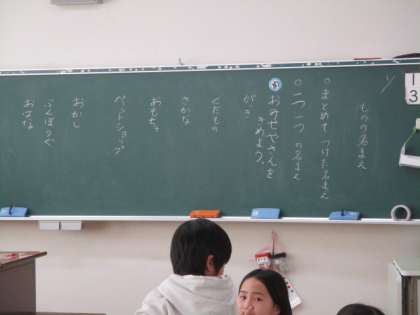 1/13
ものの名まえ
○まとめてつけた名まえ
○一つ一つの名まえ
おみせやさんを
きめよう。
がき
くだもの
さかな
おもちゃ
ペットショップ
おかし
ぶんぼうぐ
おはな